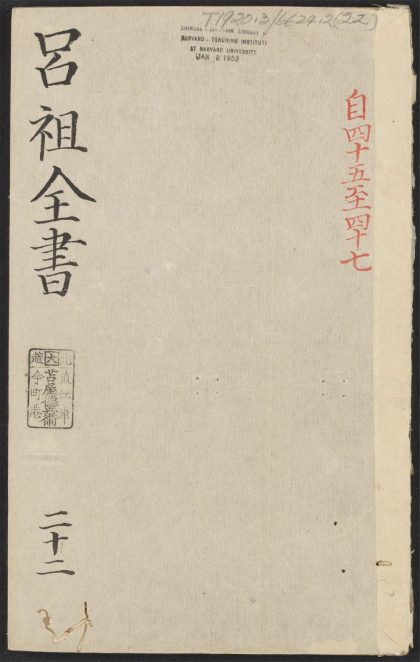 T1920.3/6624.2(22)
CHINESE - JAPANESE LIBRARY OF
HARVARD - YENCHING INSTITUTE
AT HARVARD UNIVERSITY
JAN 8 1953
自四十五至四十七
呂祖全書
北直江津
大苫屋德兵衛
藏今町巷
二十二